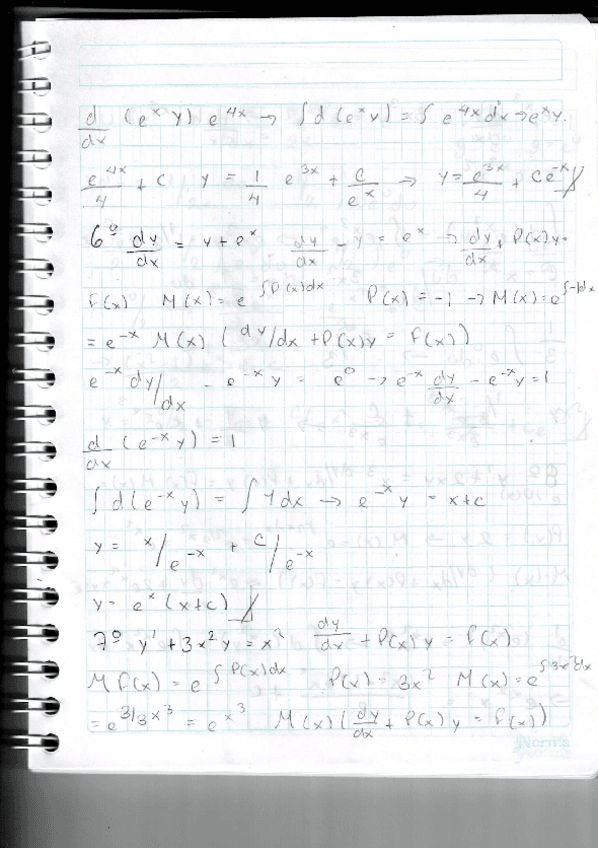 d/dx (e^x y) e^4x → ∫ d (e^x y) = ∫ e^4x dx → e^x y.
e^4x/4 + C y = 1/4 e^3x + C/e^x → y = e^3x/4 + Ce^-x //
6º dy/dx = y + e^x dy/dx - y = e^x → dy/dx + P(x) y =
f(x) M(x) = e^∫P(x)dx P(x) = -1 → M(x) = e^∫-1dx
= e^-x M(x) ( dy/dx + P(x) y = f(x) )
e^-x dy/dx - e^-x y = e^0 → e^-x dy/dx - e^-x y = 1
d/dx (e^-x y) = 1
∫ d(e^-x y) = ∫ 1 dx → e^-x y = x + c
y = x/e^-x + c/e^-x
y = e^x (x+c) //
7º y' + 3x^2 y = x^2 dy/dx + P(x) y = f(x)
M f(x) = e^∫P(x)dx P(x) = 3x^2 M(x) = e^∫3x^2dx
= e^3/3 x^3 = e^x^3 M(x) ( dy/dx + P(x) y = f(x) )
Norma